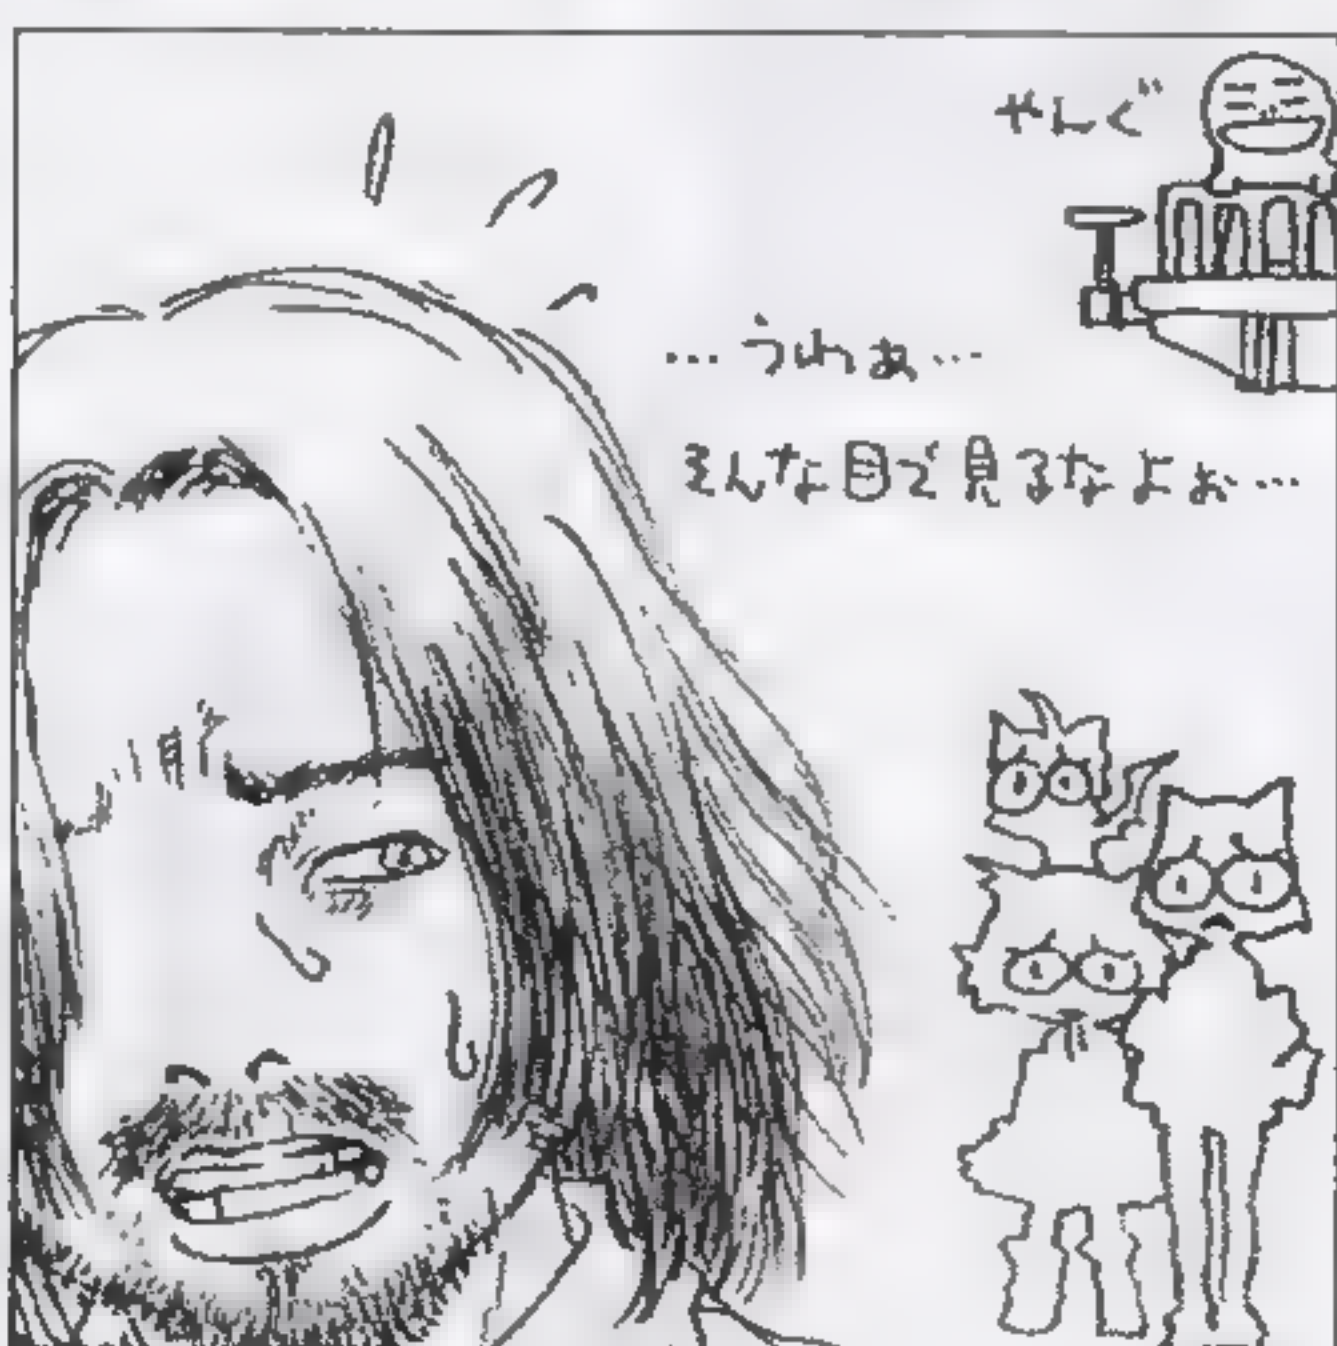 やんぐ
…うわぁ…
そんな目で見るなよぉ…